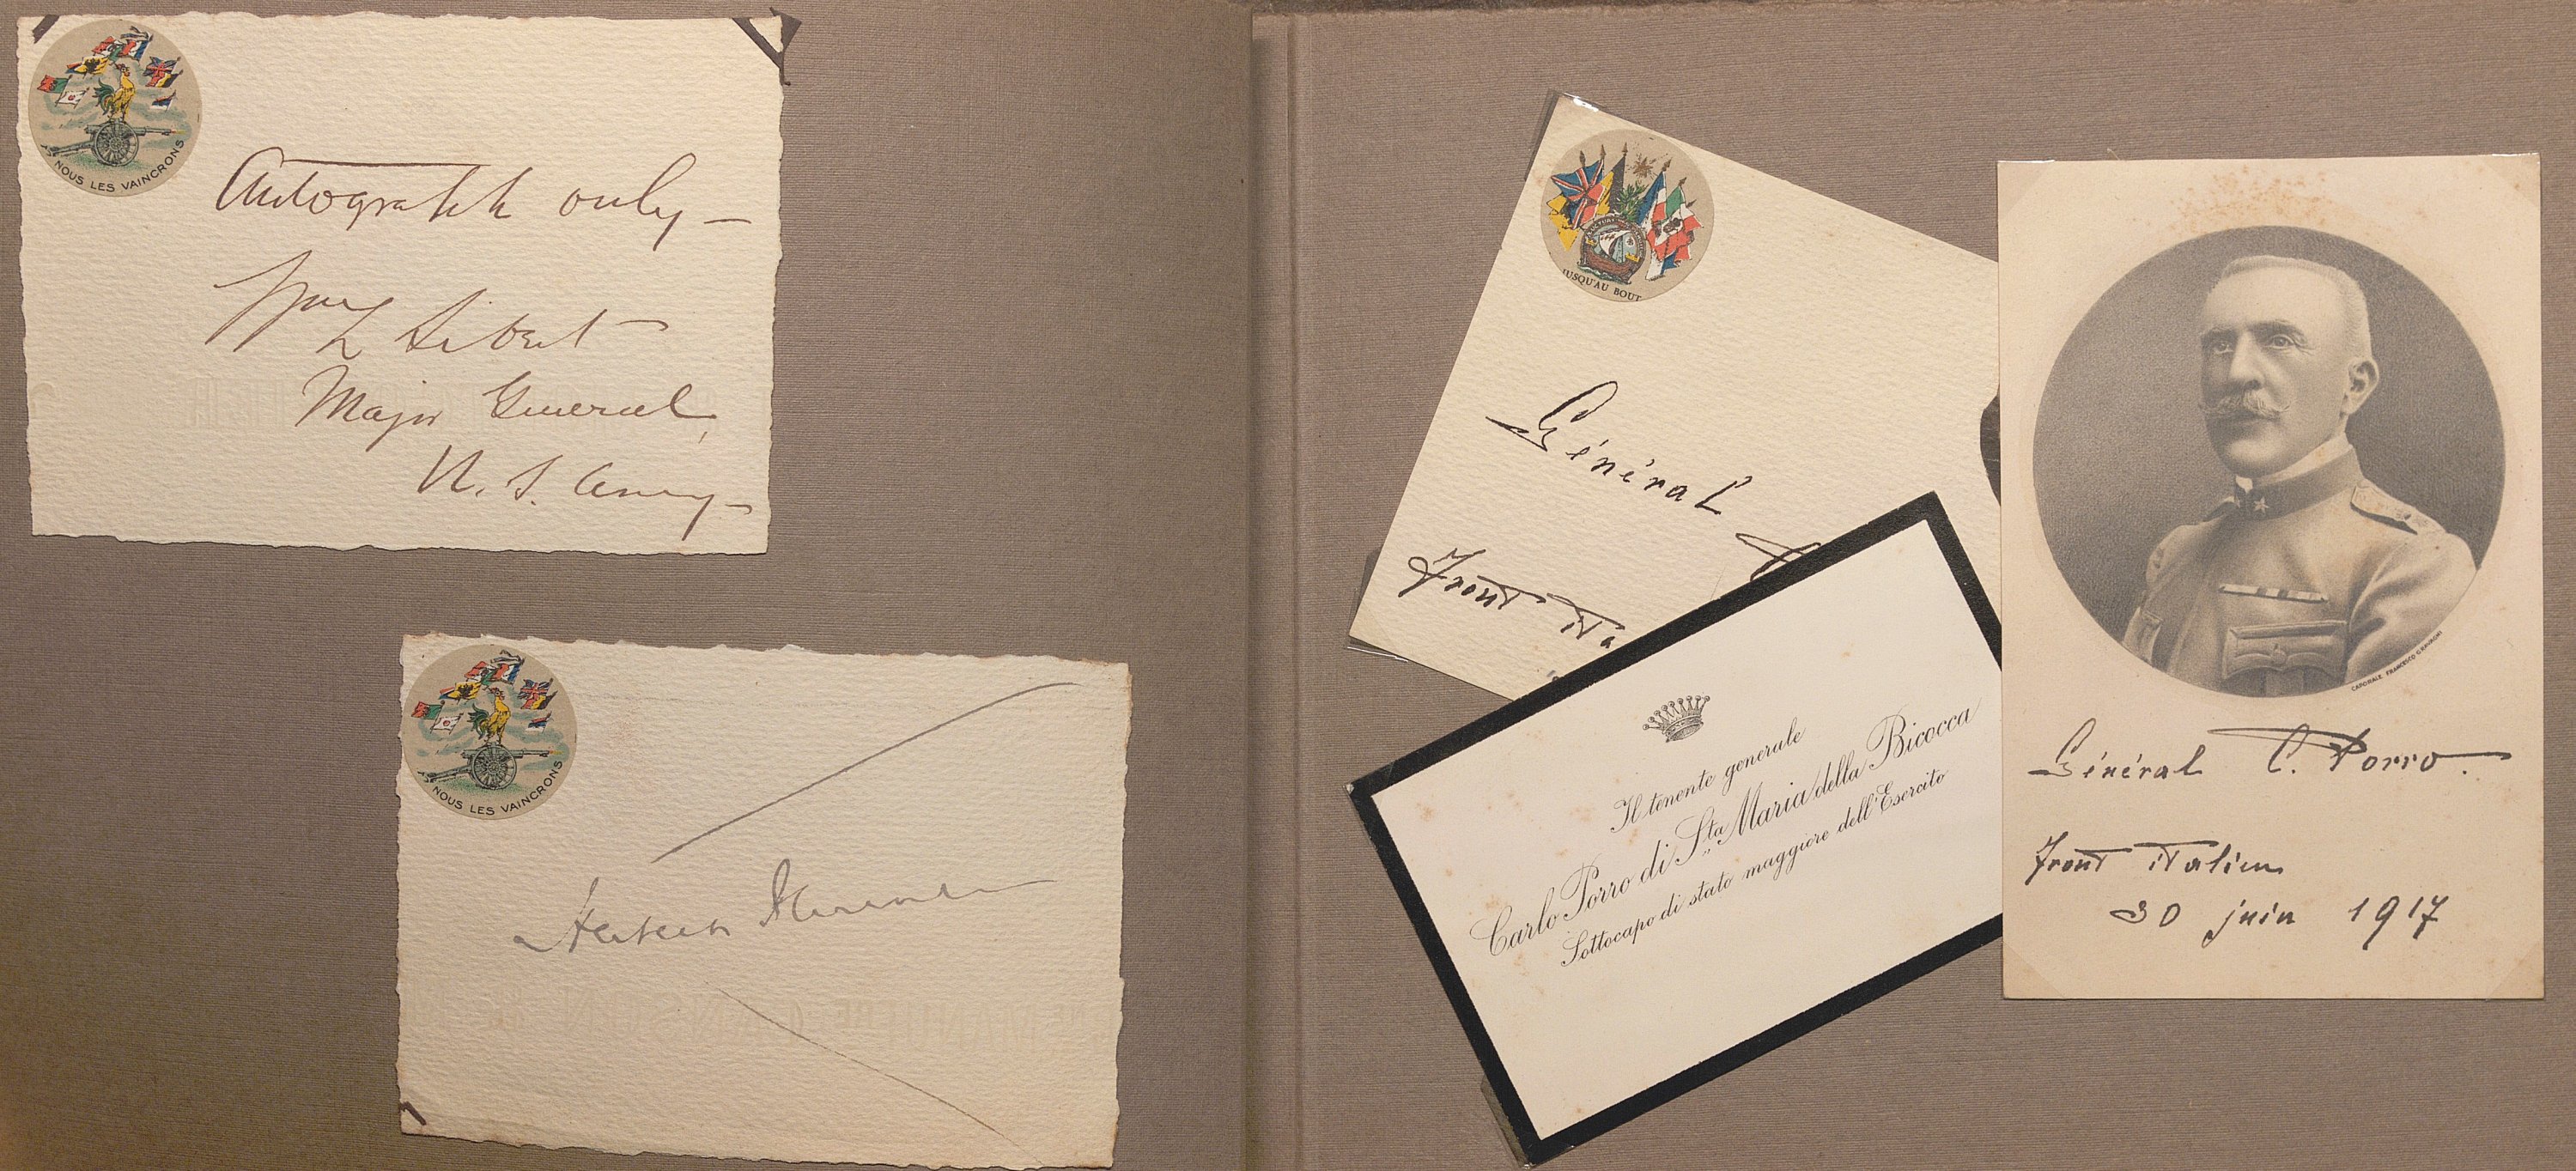 NOUS LES VAINCRONS
Autograph only—
Wm L Sibert
Major General,
U. S. Army—
NOUS LES VAINCRONS
JUSQU'AU BOUT
Général
Front ita
Il tenente generale
Carlo Porro di Sta Maria della Bicocca
Sottocapo di stato maggiore dell'Esercito
CAPORALE FRANCESCO
Général C. Porro.
Front italien
30 juin 1917